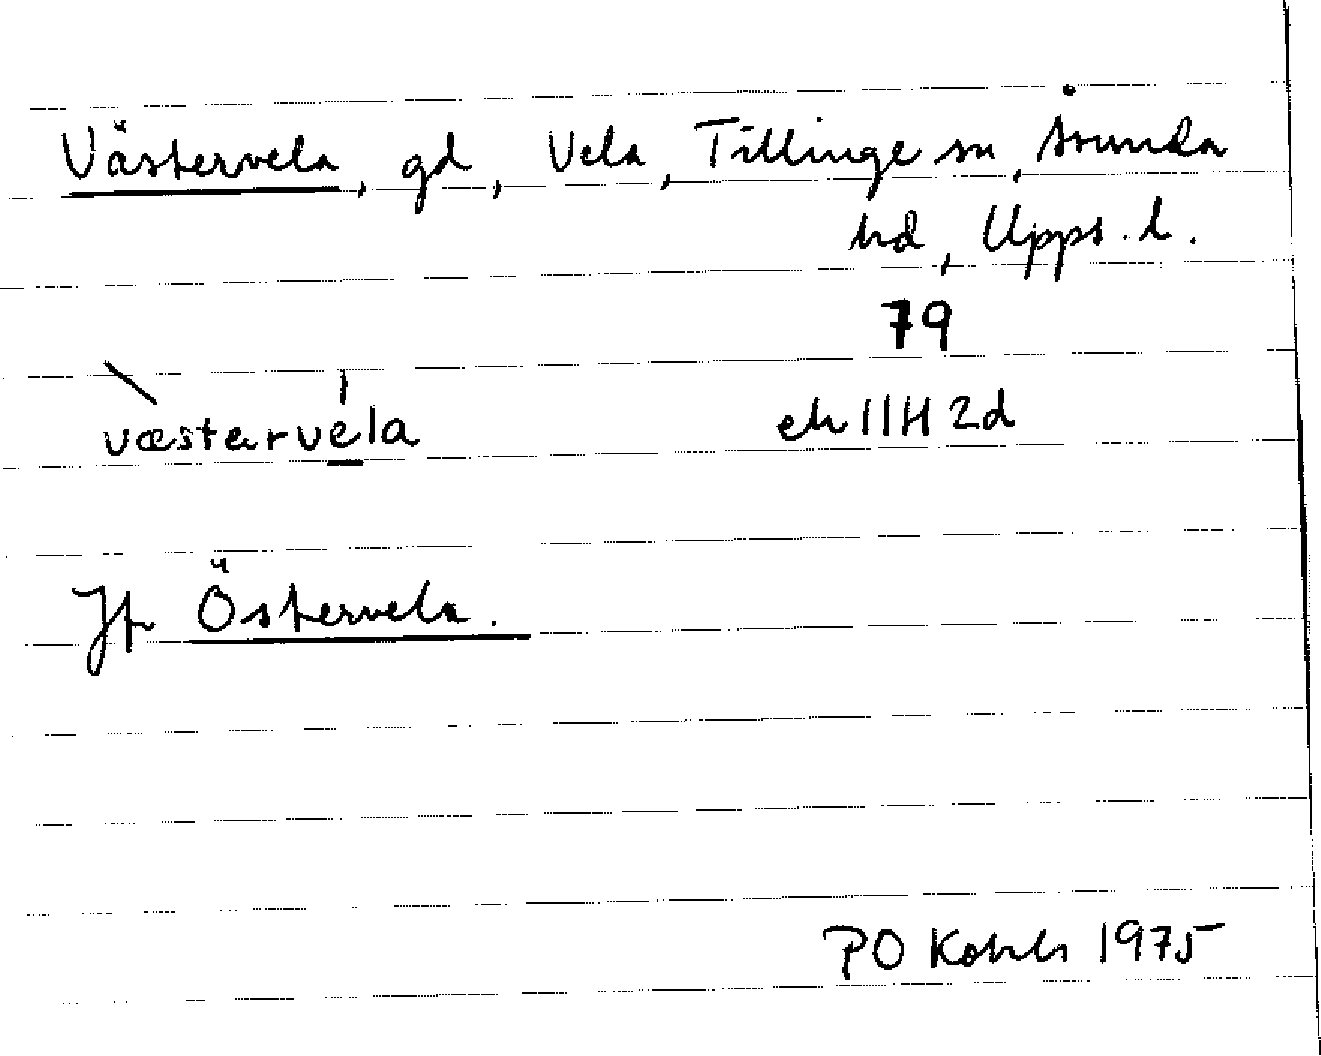 Västervela, gd, Vela, Tillinge sn, Åsunda
hd, Upps. l.
79
væstarvela ek 11H 2d
Jfr Östervela.
PO Kohls 1975